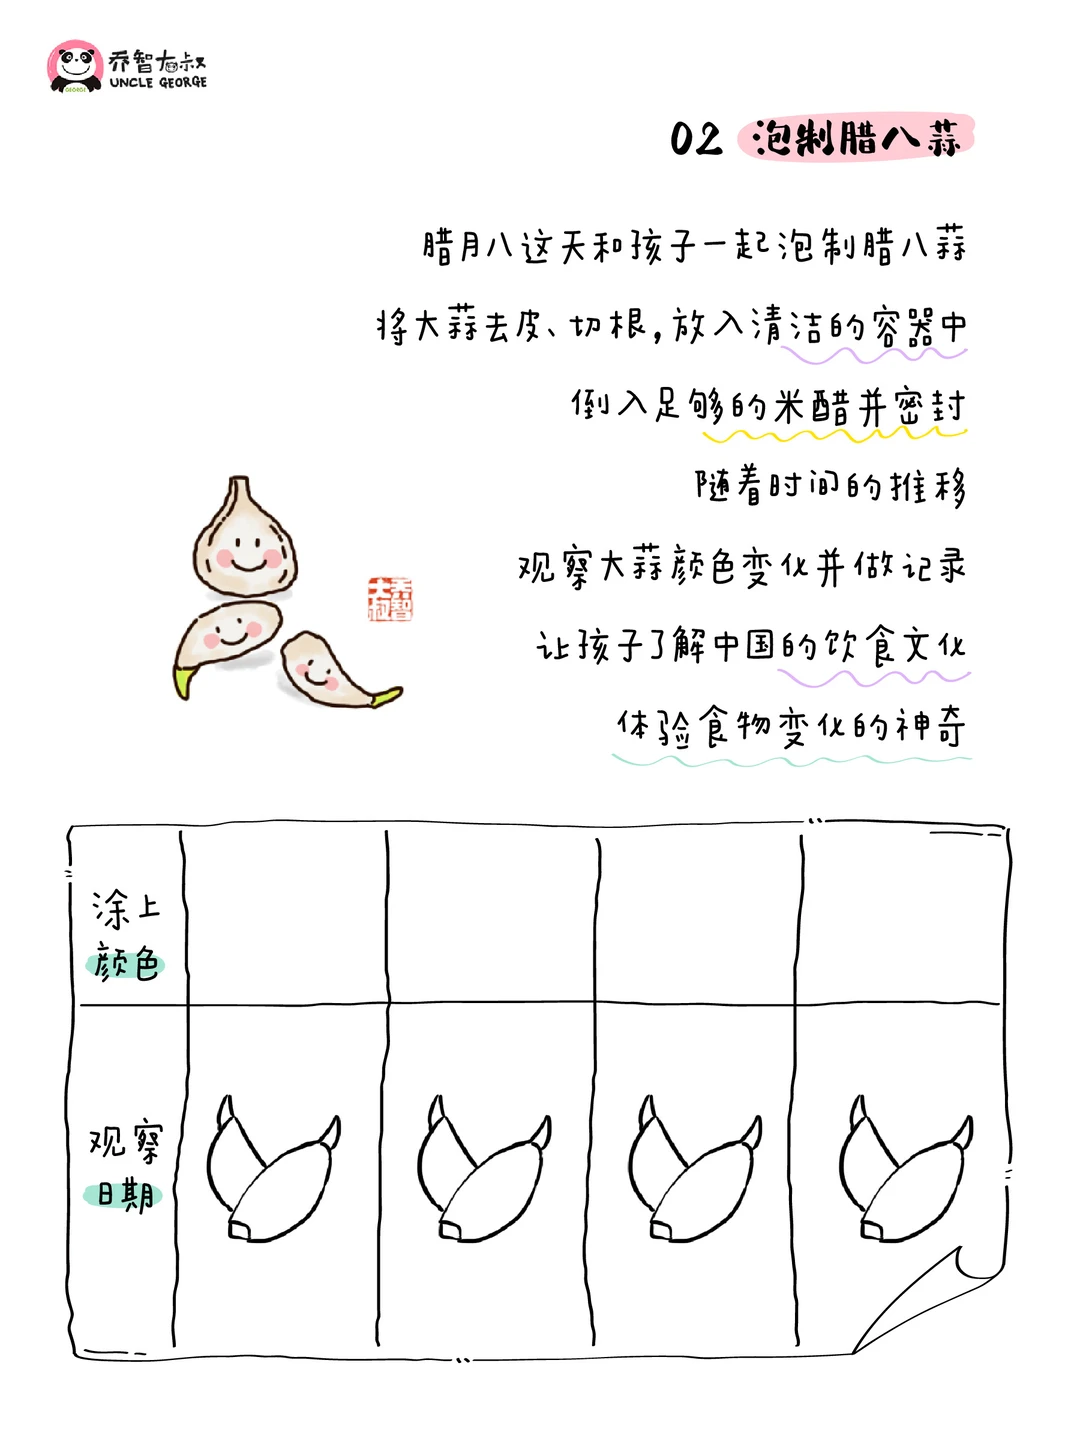 乔智大叔
UNCLE GEORGE
GEORGE
02 泡制腊八蒜
腊月八这天和孩子一起泡制腊八蒜
将大蒜去皮、切根,放入清洁的容器中
倒入足够的米醋并密封
随着时间的推移
观察大蒜颜色变化并做记录
让孩子了解中国的饮食文化
体验食物变化的神奇
乔智大叔
涂上
颜色
观察
日期